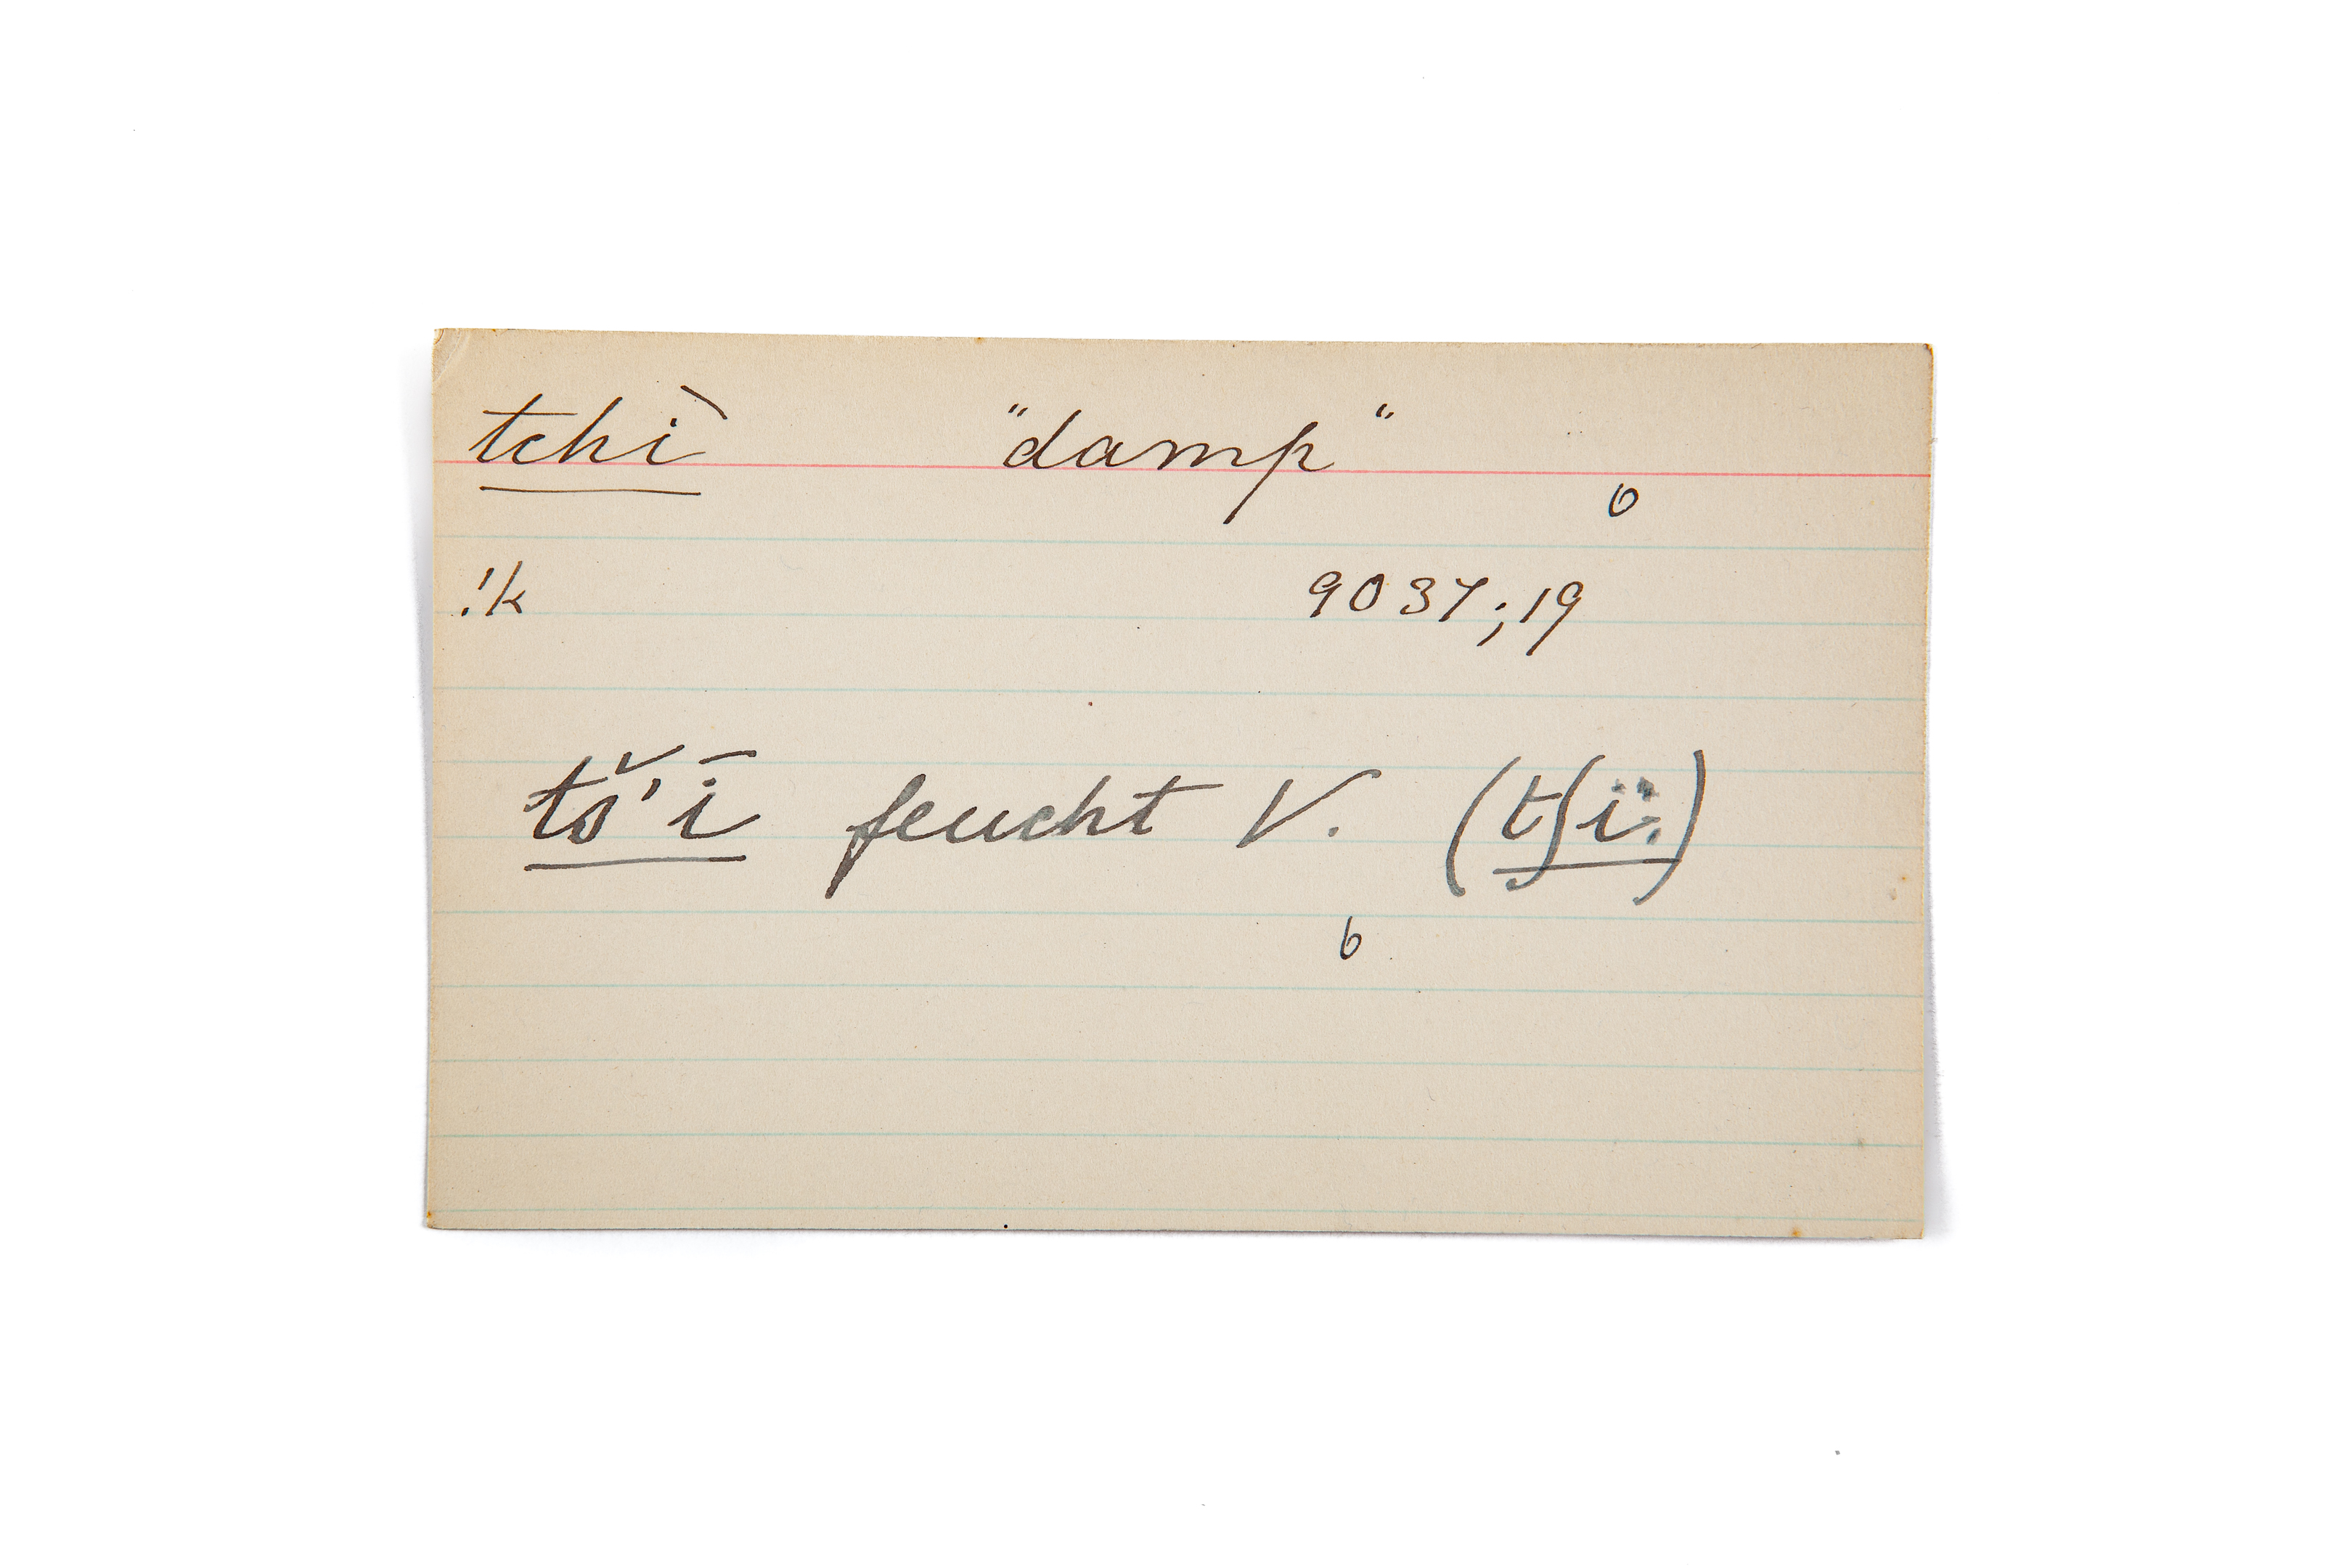 tchì "damp"
6
!k 9037;19
tš'ī feucht V. (tʃi:)
6